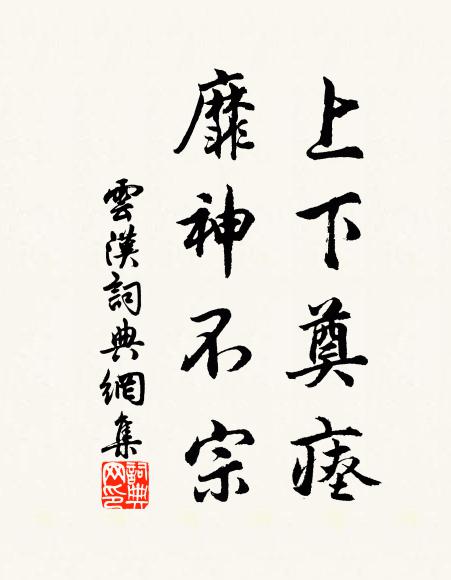 上下奠瘗
靡神不宗
雲漢詞典網集
詞典网印